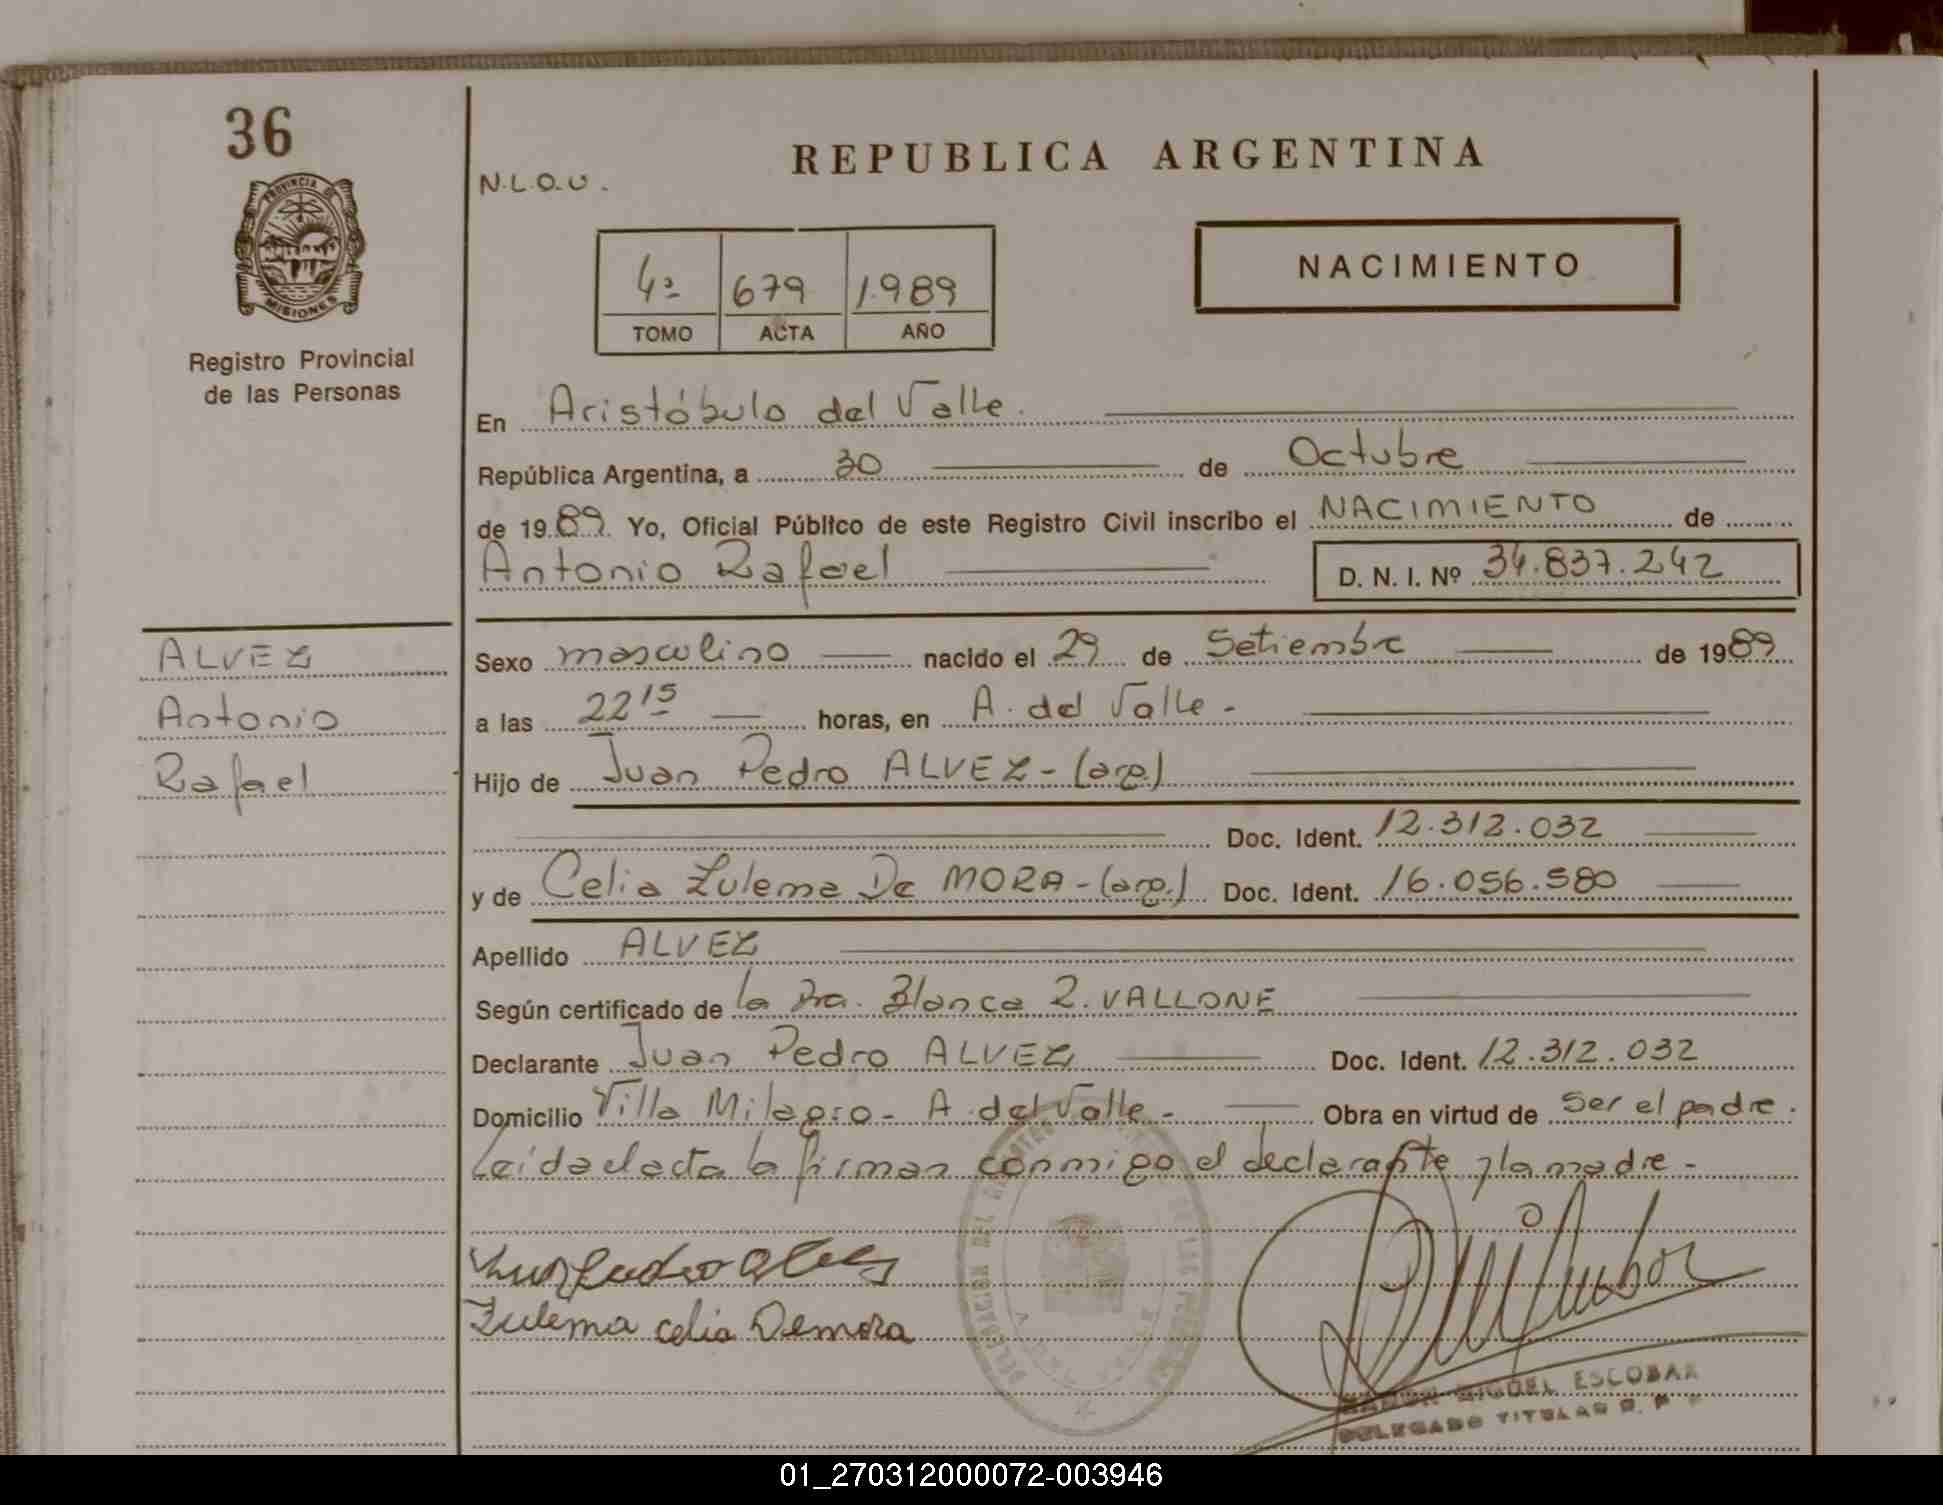 36
PROVINCIA DE
MISIONES
Registro Provincial
de las Personas
N.L.O.U.
REPUBLICA ARGENTINA
4º 679 1.989
TOMO ACTA AÑO
NACIMIENTO
En Aristóbulo del Valle.
República Argentina, a 30 de Octubre
de 1989. Yo, Oficial Público de este Registro Civil inscribo el NACIMIENTO de
Antonio Rafael D. N. I. Nº 34.837.242
ALVEZ
Antonio
Rafael
Sexo masculino nacido el 29 de Setiembre de 1989
a las 22 15 horas, en A. del Valle -
Hijo de Juan Pedro ALVEZ - (arg.)
Doc. Ident. 12.312.032
y de Celia Zulema De MORA - (arg.) Doc. Ident. 16.056.580
Apellido ALVEZ
Según certificado de la Dra. Blanca R. VALLONE
Declarante Juan Pedro ALVEZ Doc. Ident. 12.312.032
Domicilio Villa Milagro - A. del Valle - Obra en virtud de ser el padre.
Leída el acta la firman conmigo el declarante y la madre -
Juan Pedro Alvez
Zulema celia Demora
RAMON MIGUEL ESCOBAR
DELEGADO TITULAR R. P.
01_270312000072-003946